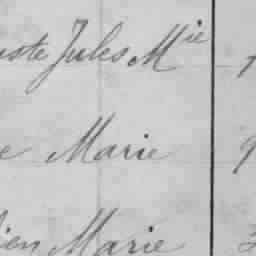 uste Jules Mie
e Marie 9
ien Marie